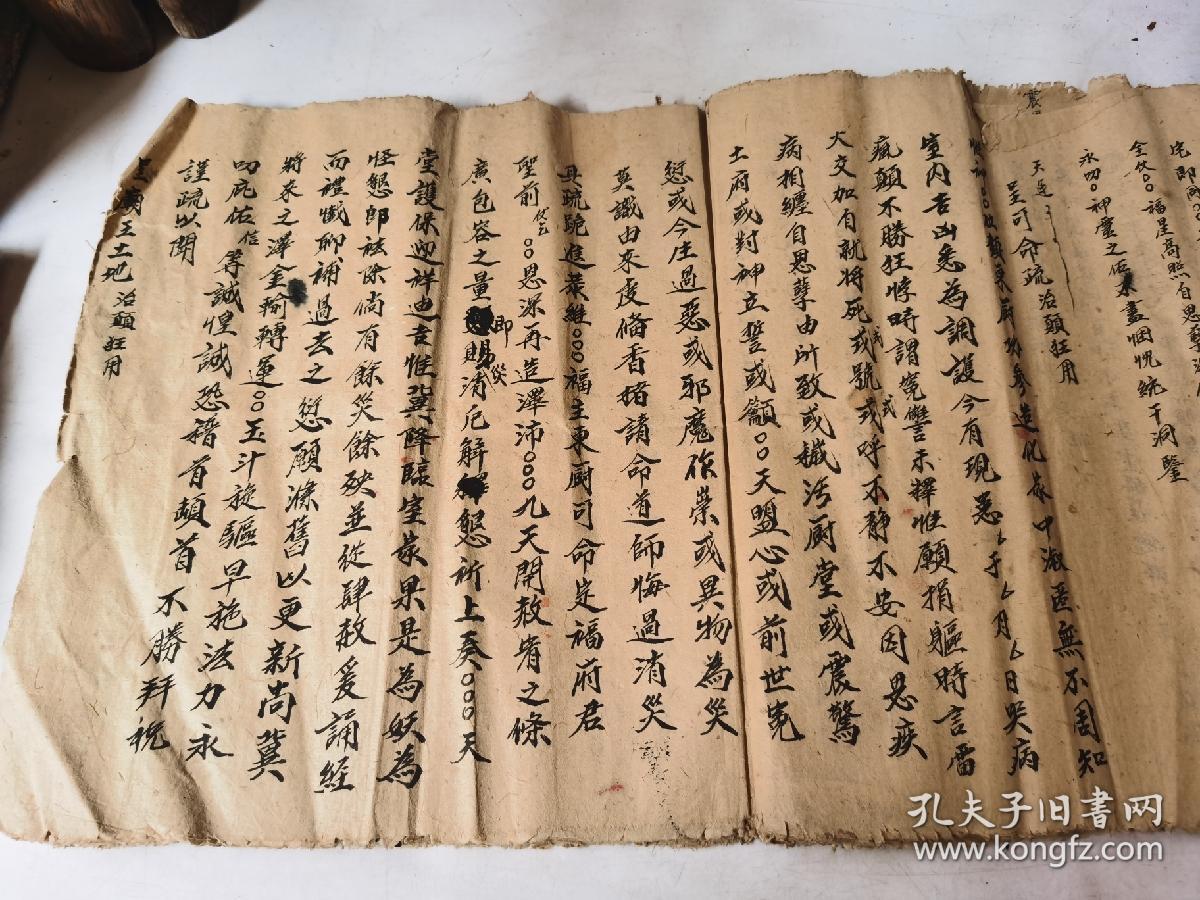 全伏〇〇福星高照自思
永叨〇神靈之
呈司命疏治顛狂用
造化家中淑慝無不周知
室內吉凶悉為調護今有現患厶于厶月厶日哭病
瘋顛不勝狂悖時謂冤讐未釋惟願捐軀時言雷
火交加有就將死或號或呼不靜不安因思疾
病相纏自思孽由所致或穢污廚堂或震驚
土府或對神立誓或籲〇〇天盟心或前世冤
愆或今生過惡或邪魔作祟或異物為災
莫識由來虔備香楮請命道師悔過消災
具疏跪進葉維〇〇〇福主東廚司命定福府君
聖前伏乞〇〇恩深再造澤沛〇〇〇九天開赦宥之條
廣包容之量即賜消災解愆祈上奏〇〇〇天
堂護保迎祥迪吉惟冀降臨室家果是為妖為
怪懇即祛除倘有餘災餘殃並從肆赦爰誦經
而禮懺聊補過去之愆願滌舊以更新尚冀
將來之澤金輪轉運〇〇玉斗旋驅早施法力永
叨庇佑信等誠惶誠恐稽首頓首不勝拜祝
謹疏以聞
土地治顛狂用
孔夫子旧书网
www.kongfz.com